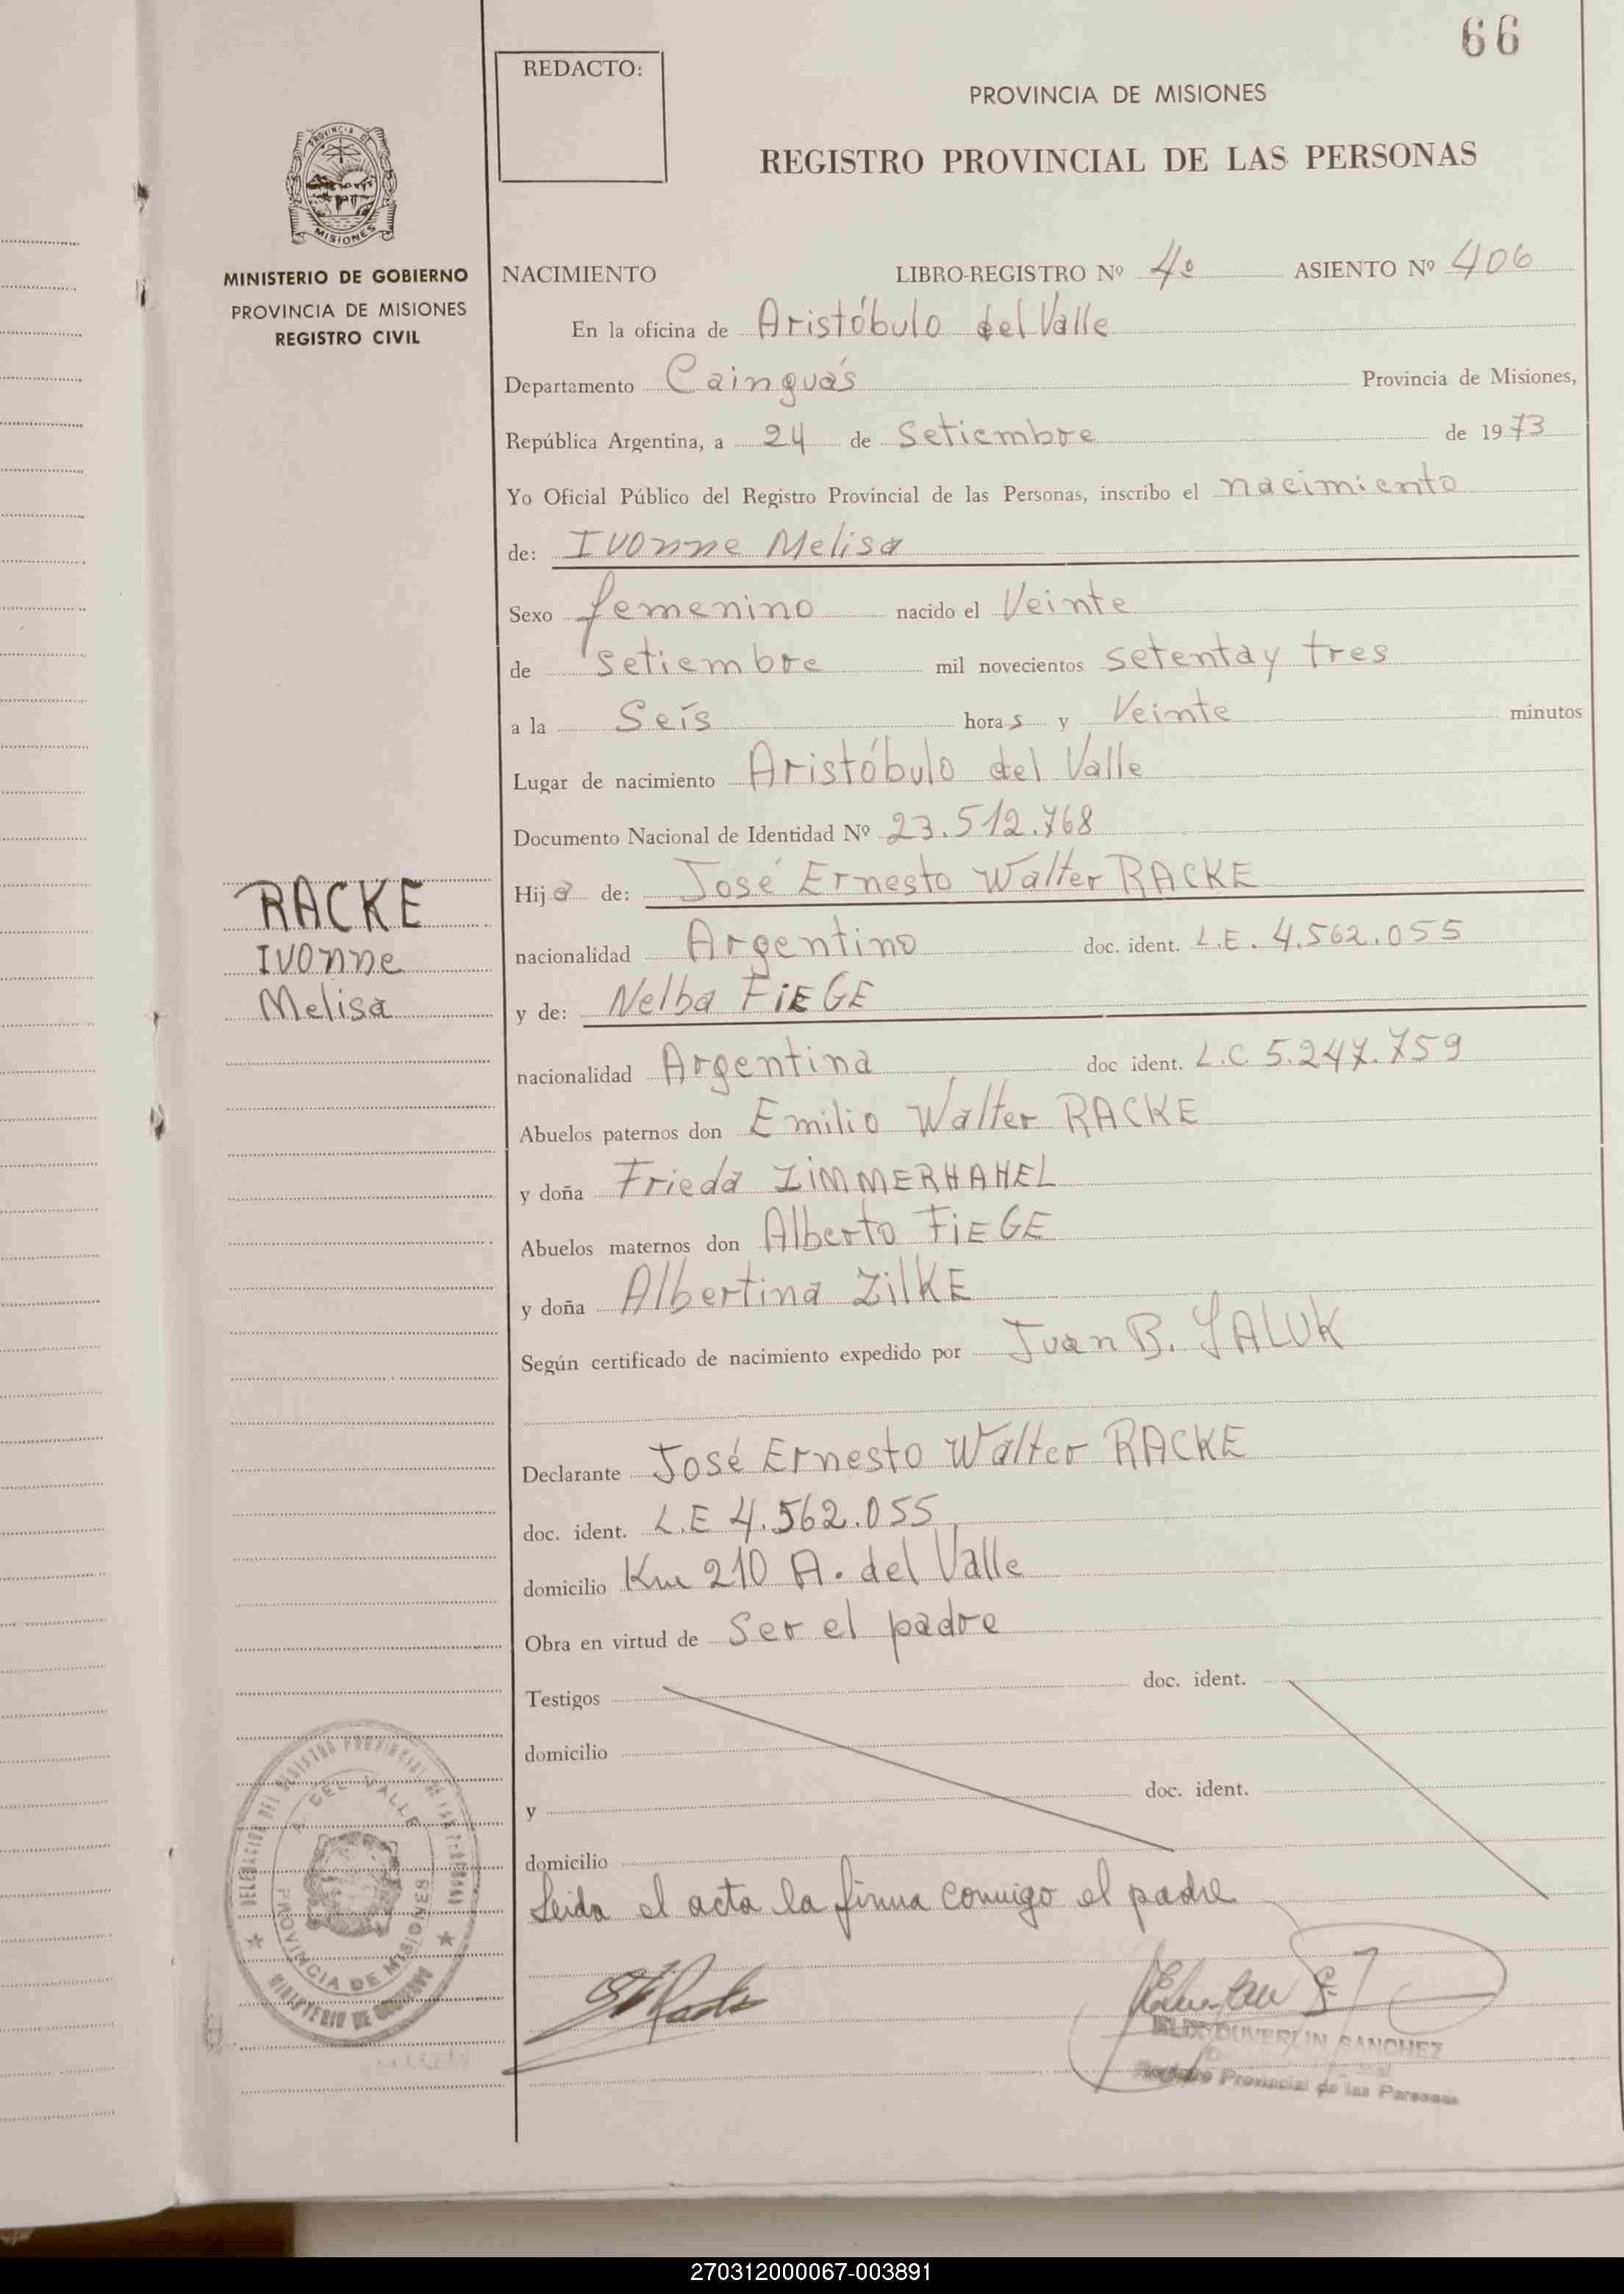 66
REDACTO:
PROVINCIA DE MISIONES
REGISTRO PROVINCIAL DE LAS PERSONAS
PROVINCIA DE
MISIONES
MINISTERIO DE GOBIERNO
PROVINCIA DE MISIONES
REGISTRO CIVIL
NACIMIENTO LIBRO-REGISTRO Nº 4º ASIENTO Nº 406
En la oficina de Aristóbulo del Valle
Departamento Cainguás Provincia de Misiones,
República Argentina, a 24 de Setiembre de 1973
Yo Oficial Público del Registro Provincial de las Personas, inscribo el nacimiento
de: Ivonne Melisa
Sexo femenino nacido el Veinte
de Setiembre mil novecientos setenta y tres
a la Seis horas y Veinte minutos
Lugar de nacimiento Aristóbulo del Valle
Documento Nacional de Identidad Nº 23.512.768
RACKE
Ivonne
Melisa
Hija de: José Ernesto Walter RACKE
nacionalidad Argentino doc. ident. L.E. 4.562.055
y de: Nelba FiEGE
nacionalidad Argentina doc ident. L.C 5.247.759
Abuelos paternos don Emilio Walter RACKE
y doña Frieda ZiMMERHAHEL
Abuelos maternos don Alberto FiEGE
y doña Albertina ZilKE
Según certificado de nacimiento expedido por Juan B. SALUK
Declarante José Ernesto Walter RACKE
doc. ident. L.E 4.562.055
domicilio Km 210 A. del Valle
Obra en virtud de Ser el padre
Testigos doc. ident.
domicilio
y doc. ident.
domicilio
Leida el acta la firma conmigo el padre
DELEGACION DEL REGISTRO PROVINCIAL DE LAS PERSONAS
A. DEL VALLE
PROVINCIA DE MISIONES
MINISTERIO DE GOBIERNO
DUVERLIN SANCHEZ
Registro Provincial de las Personas
270312000067-003891